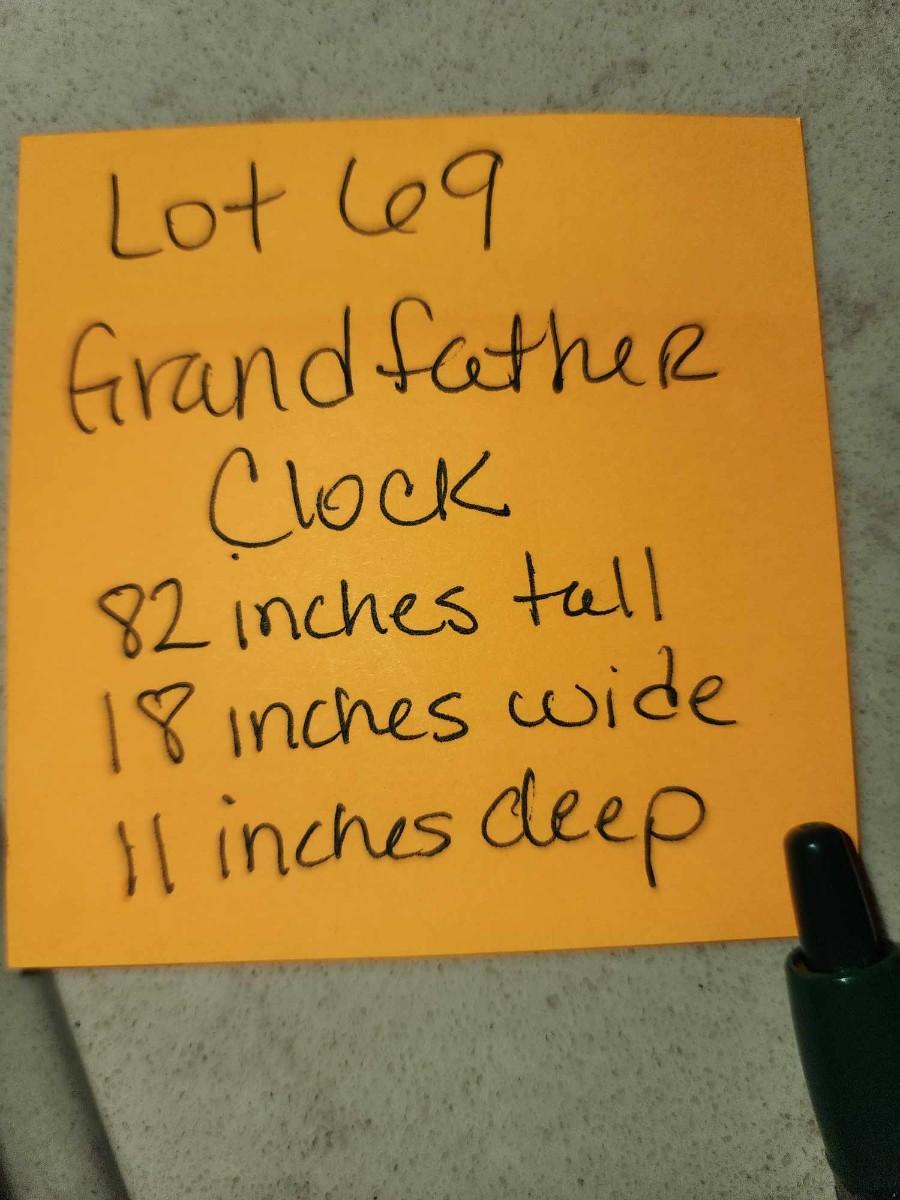 Lot 69
Grandfather
Clock
82 inches tall
18 inches wide
11 inches deep